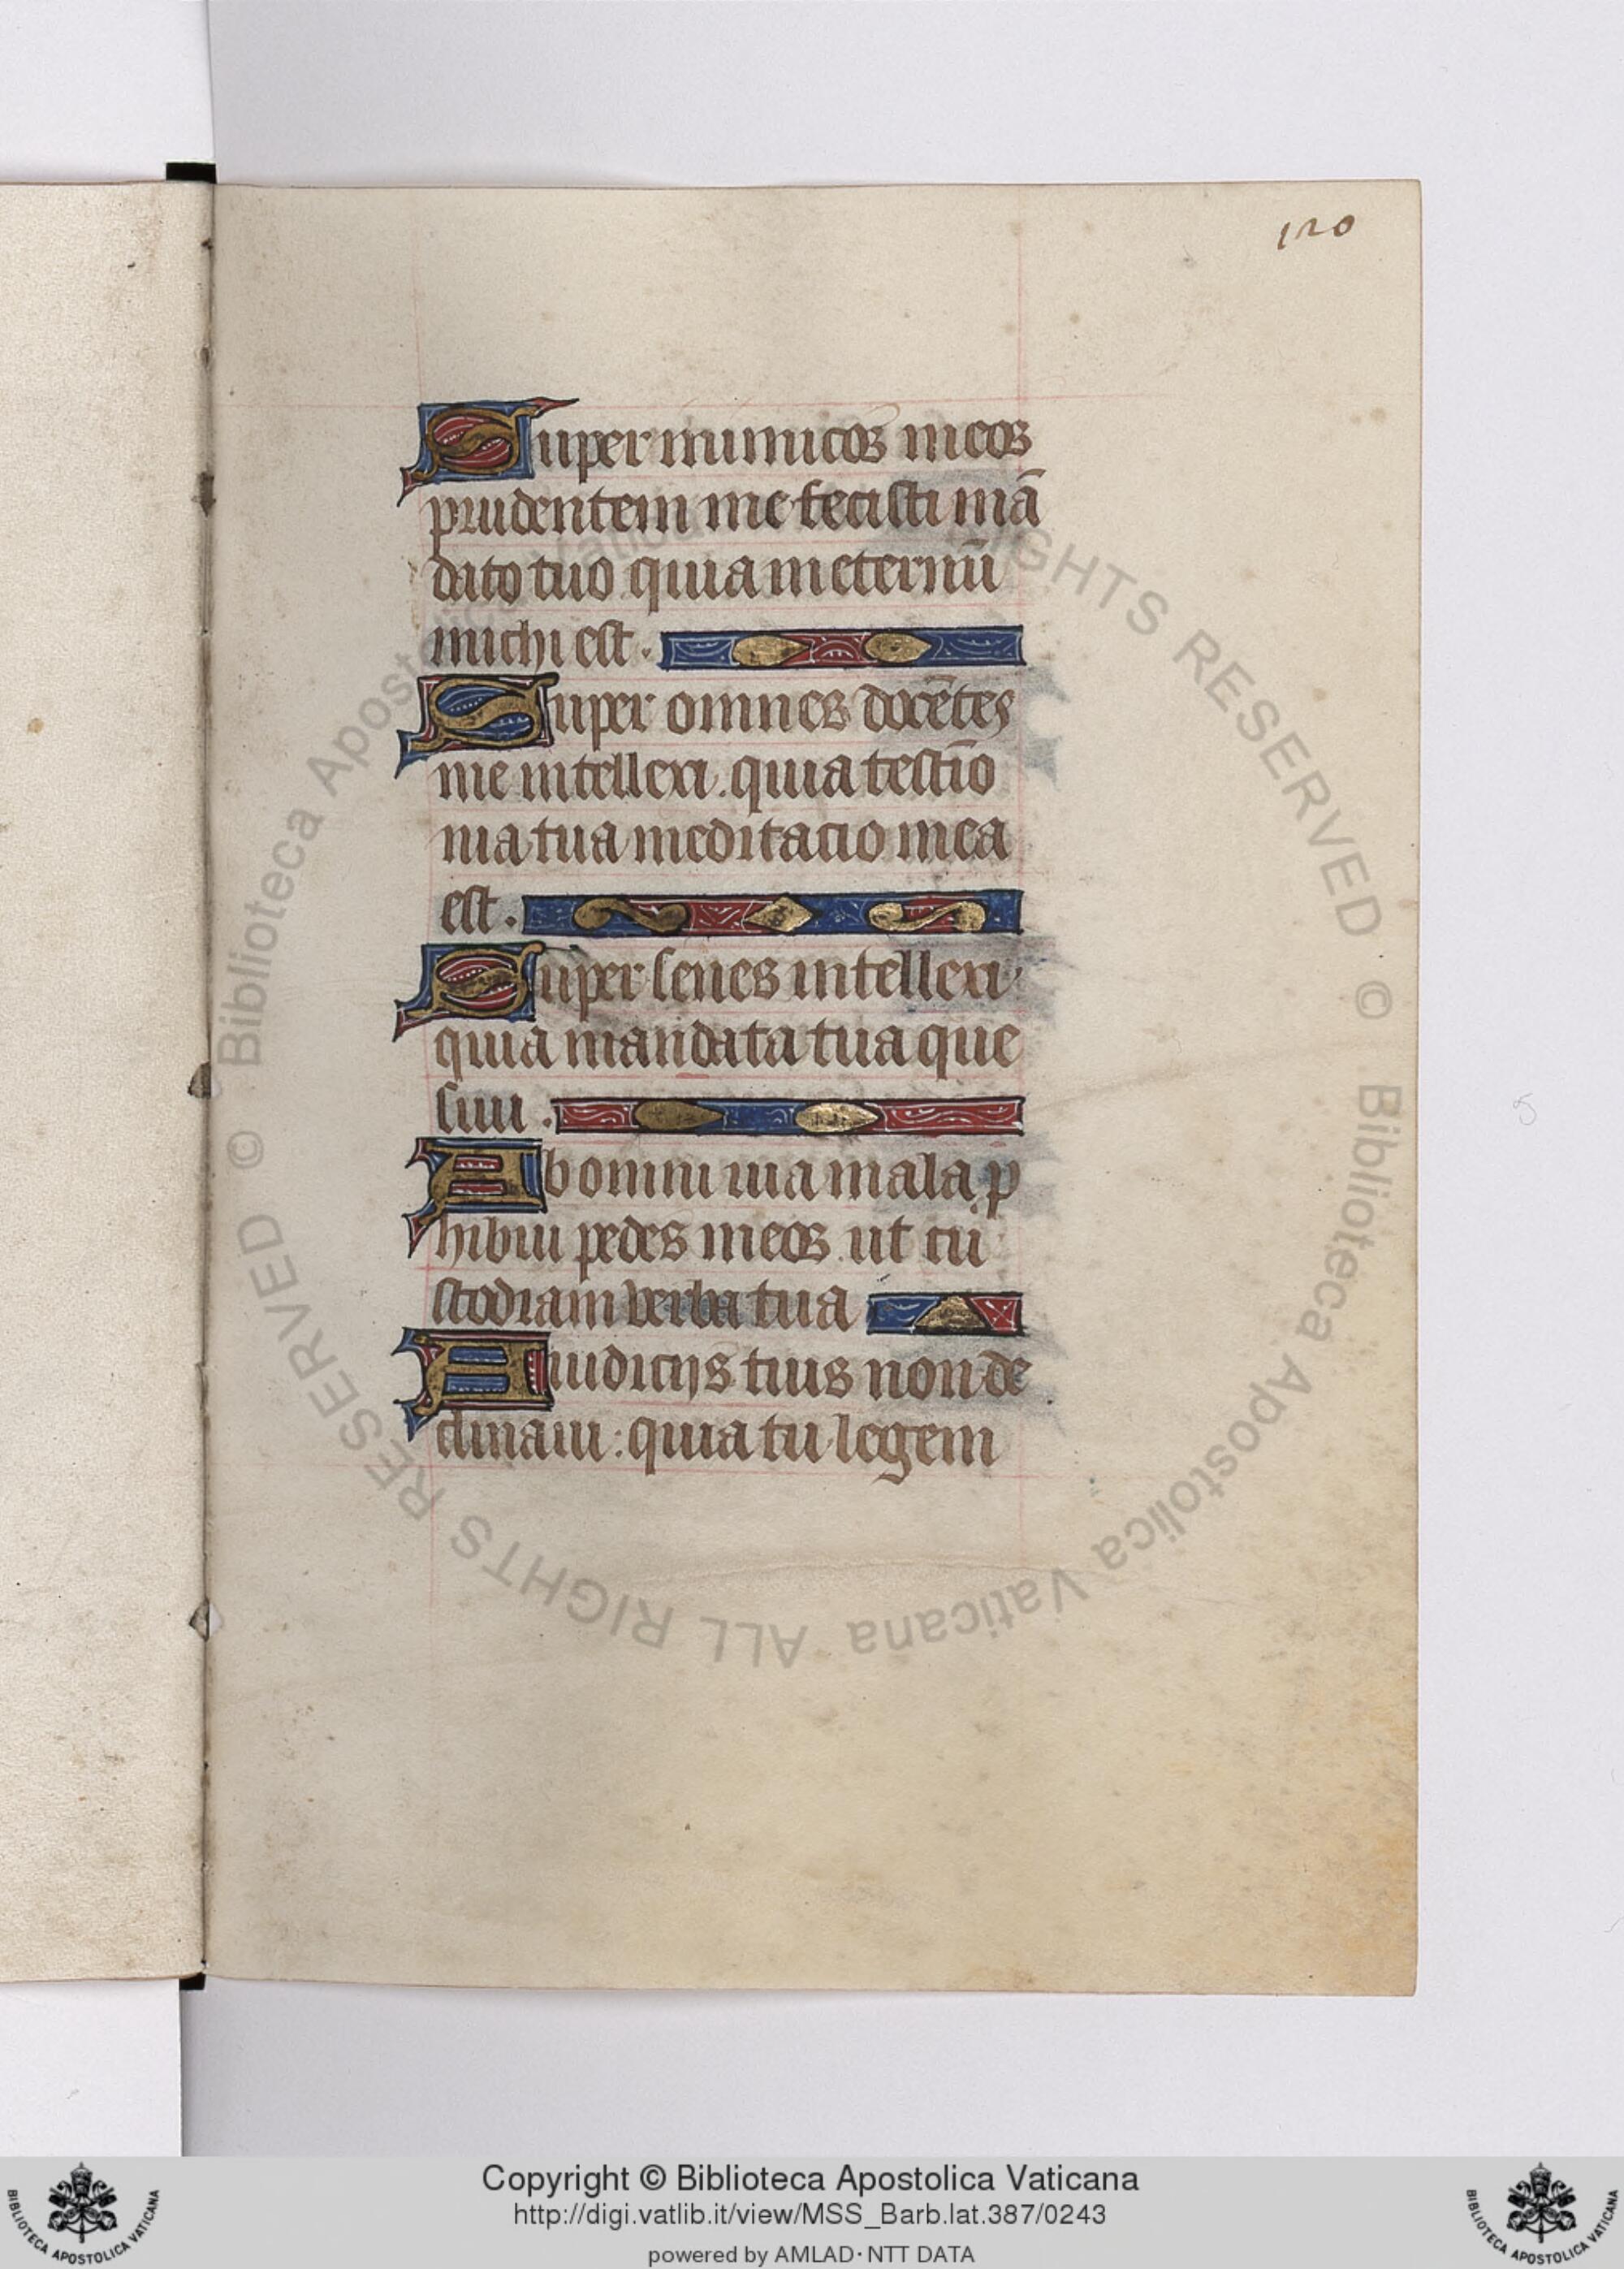 120
Super inimicos meos
prudentem me fecisti mā
dato tuo quia in eternū
michi est.
Super omnes docētes
me intellexi. quia testīo
nia tua meditacio mea
est.
Super senes intellexi
quia mandata tua que
siui.
Ab omni uia mala p̄
hibui pedes meos. ut cu
stodiam verba tua
A iudicijs tuis non de
clinaui: quia tu legem
© Biblioteca Apostolica Vaticana ALL RIGHTS RESERVED © Biblioteca Apostolica Vaticana ALL RIGHTS RESERVED
Copyright © Biblioteca Apostolica Vaticana
http://digi.vatlib.it/view/MSS_Barb.lat.387/0243
powered by AMLAD·NTT DATA
BIBLIOTECA APOSTOLICA VATICANA
BIBLIOTECA APOSTOLICA VATICANA